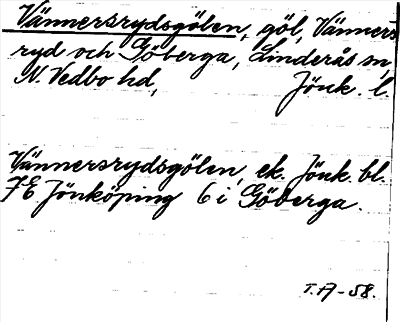 Vännersrydsgölen, göl, Vänners-
ryd och Göberga, Linderås sn,
N. Vedbo hd, Jönk. l.
Vännersrydsgölen, ek. Jönk. bl.
7E Jönköping 6 i Göberga.
T.A-58.